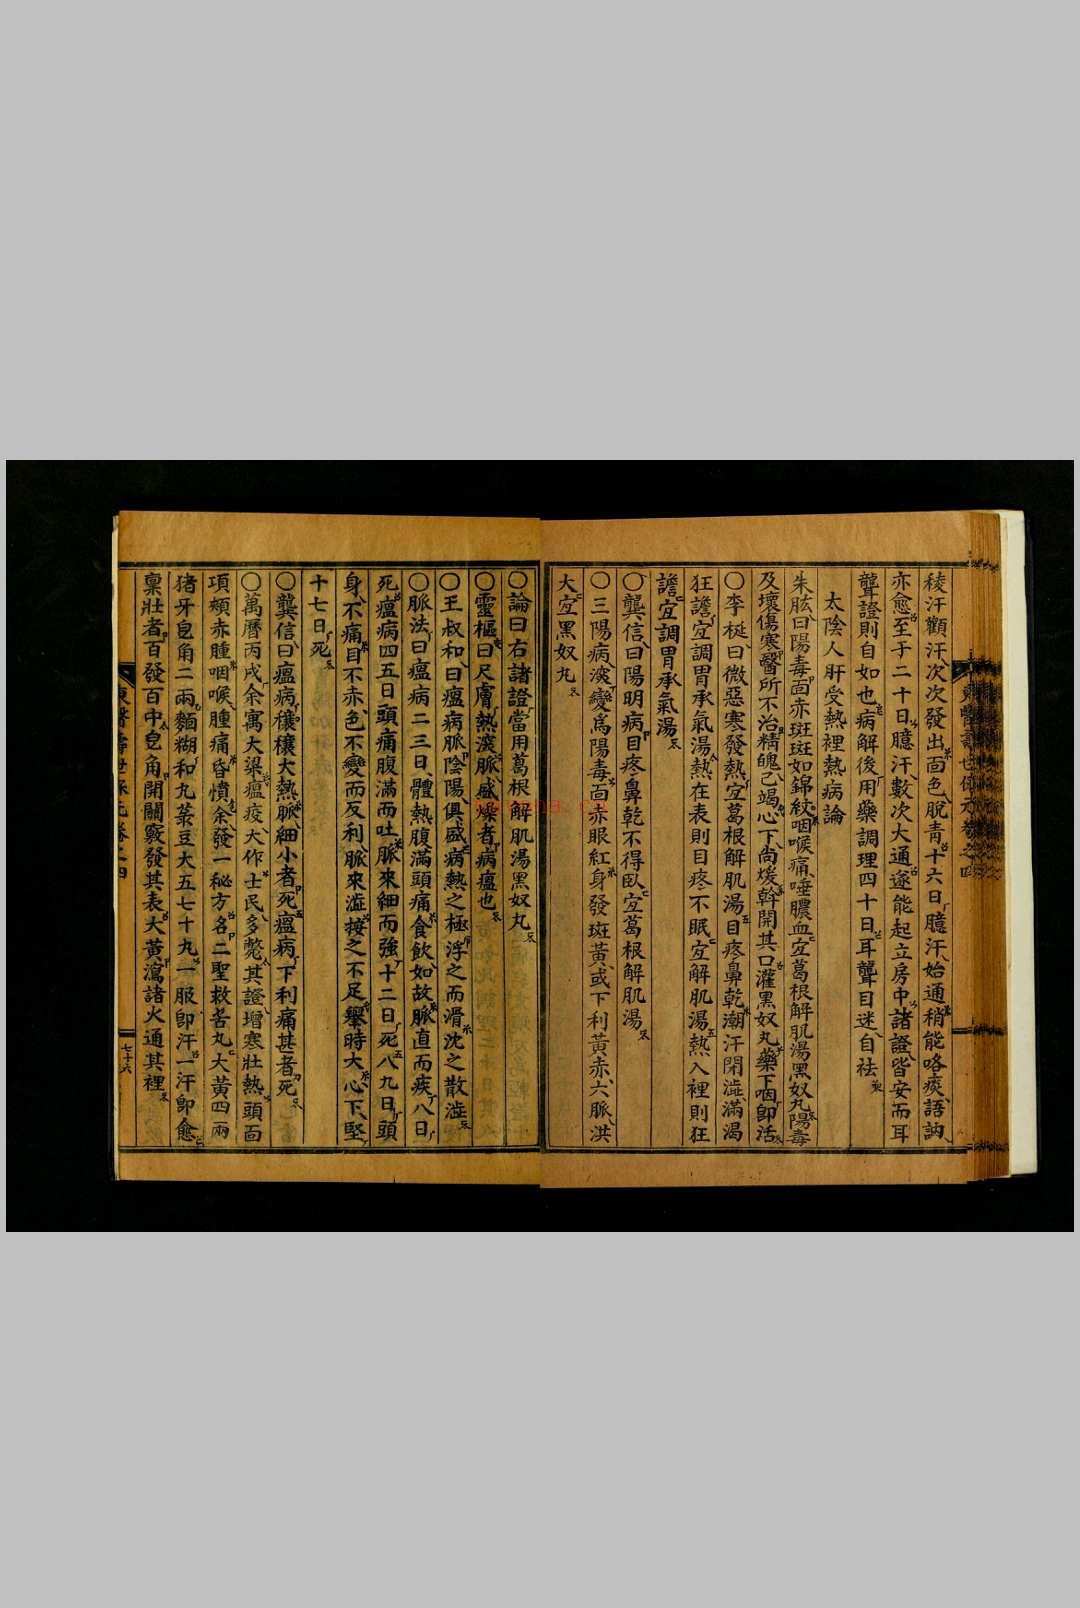 稜汗顴汗次次發出面色脫靑十六日臆汗始通稍能咯痰語訥
亦愈至于二十日臆汗數次大通遂能起立房中諸證皆安而耳
聾證則自如也病解後用藥調理四十日耳聾目迷自祛
太陰人肝受熱裡熱病論
朱肱曰陽毒面赤斑斑如錦紋咽喉痛唾膿血宜葛根解肌湯黑奴丸陽毒
及壞傷寒醫所不治精魄已竭心下尚煖斡開其口灌黑奴丸藥下咽卽活
○李梴曰微惡寒發熱宜葛根解肌湯目疼鼻乾潮汗閉澁滿渴
狂譫宜調胃承氣湯熱在表則目疼不眠宜解肌湯熱入裡則狂
譫宜調胃承氣湯
○龔信曰陽明病目疼鼻乾不得臥宜葛根解肌湯
○三陽病深變爲陽毒面赤眼紅身發斑黃或下利黃赤六脈洪
大宜黑奴丸
○論曰右諸證當用葛根解肌湯黑奴丸
○靈樞曰尺膚熱深脈盛燥者病瘟也
○王叔和曰瘟病脈陰陽俱盛病熱之極浮之而滑沈之散澁
○脈法曰瘟病二三日體熱腹滿頭痛食飮如故脈直而疾八日
死瘟病四五日頭痛腹滿而吐脈來細而強十二日死八九日頭
身不痛目不赤色不變而反利脈來澁按之不足擧時大心下堅
十七日死
○龔信曰瘟病穰穰大熱脈細小者死瘟病下利痛甚者死
○萬曆丙戌余寓大梁瘟疫大作士民多斃其證增寒壯熱頭面
項頰赤腫咽喉腫痛昏憒余發一秘方名二聖救苦丸大黃四兩
猪牙皂角二兩麵糊和丸菉豆大五七十丸一服卽汗一汗卽愈
稟壯者百發百中皂角開關竅發其表大黃瀉諸火通其裡
東醫壽世保元卷之四
七十六